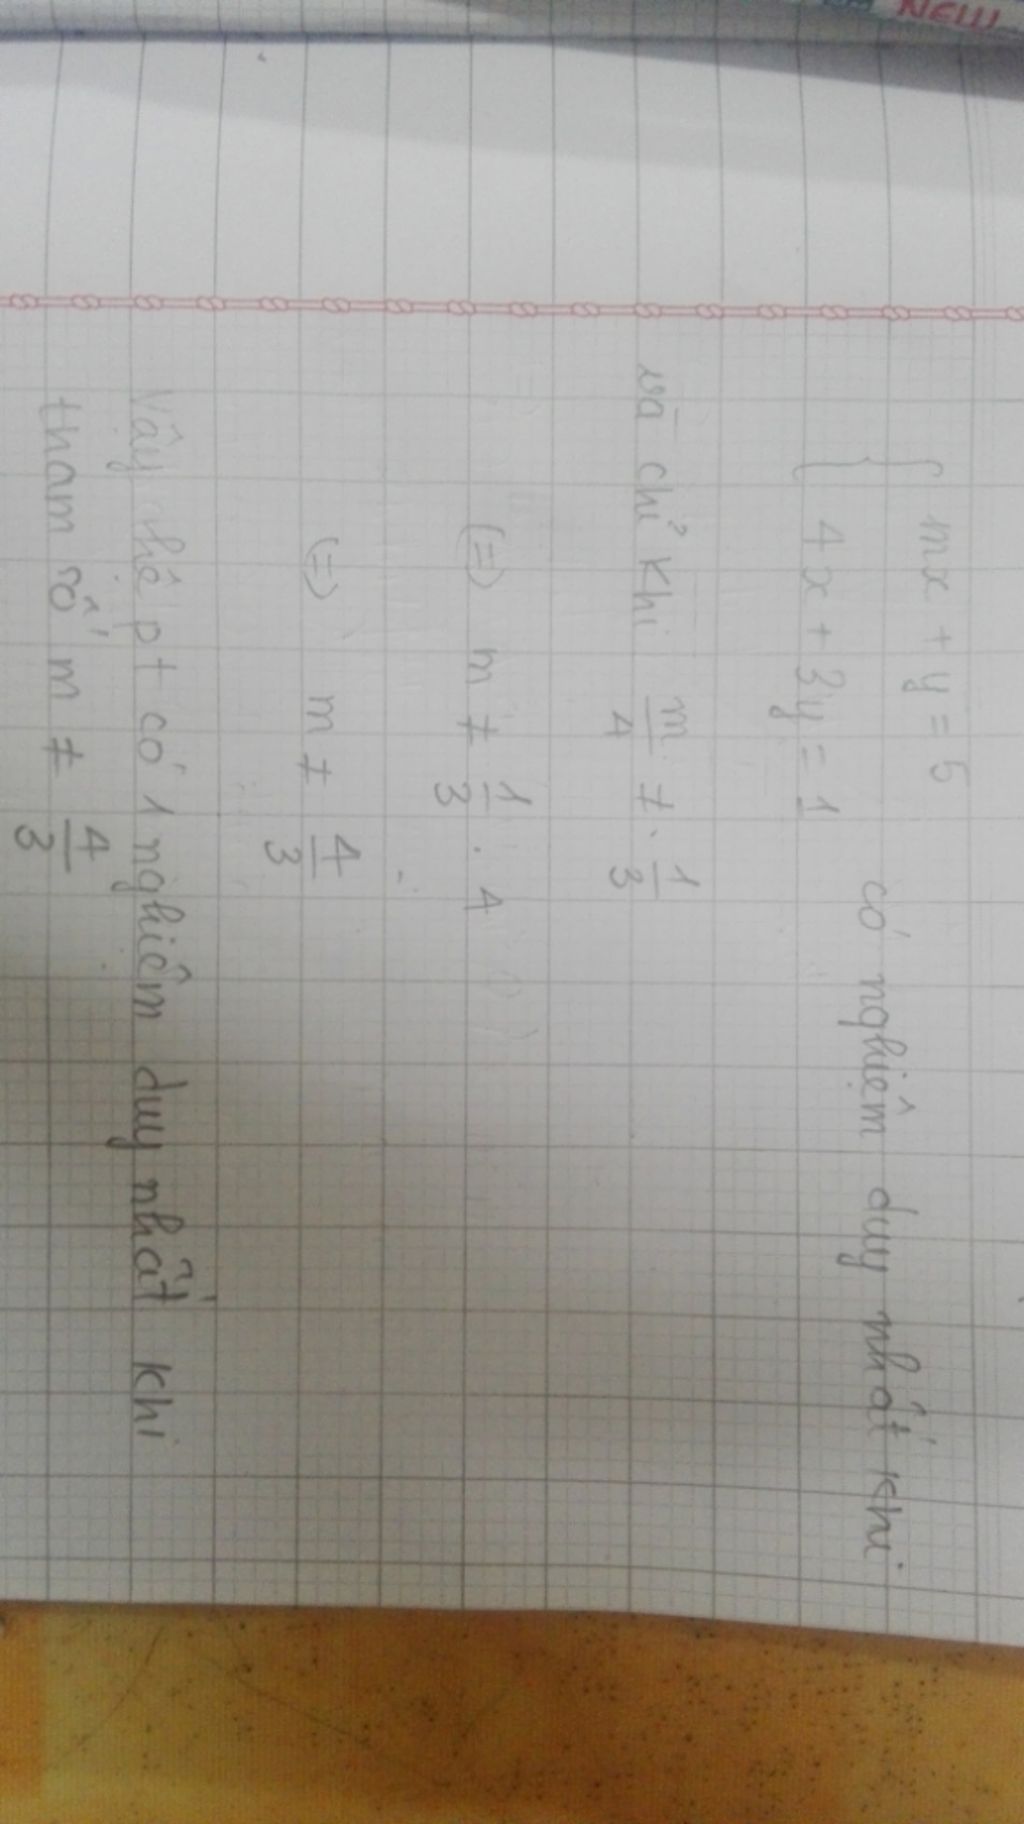 NEW
{ mx + y = 5
4x + 3y = 1 có nghiệm duy nhất khi
và chỉ khi m/4 ≠ 1/3
(=) m ≠ 1/3 . 4
(=) m ≠ 4/3
Vậy hệ pt có 1 nghiệm duy nhất khi
tham số m ≠ 4/3